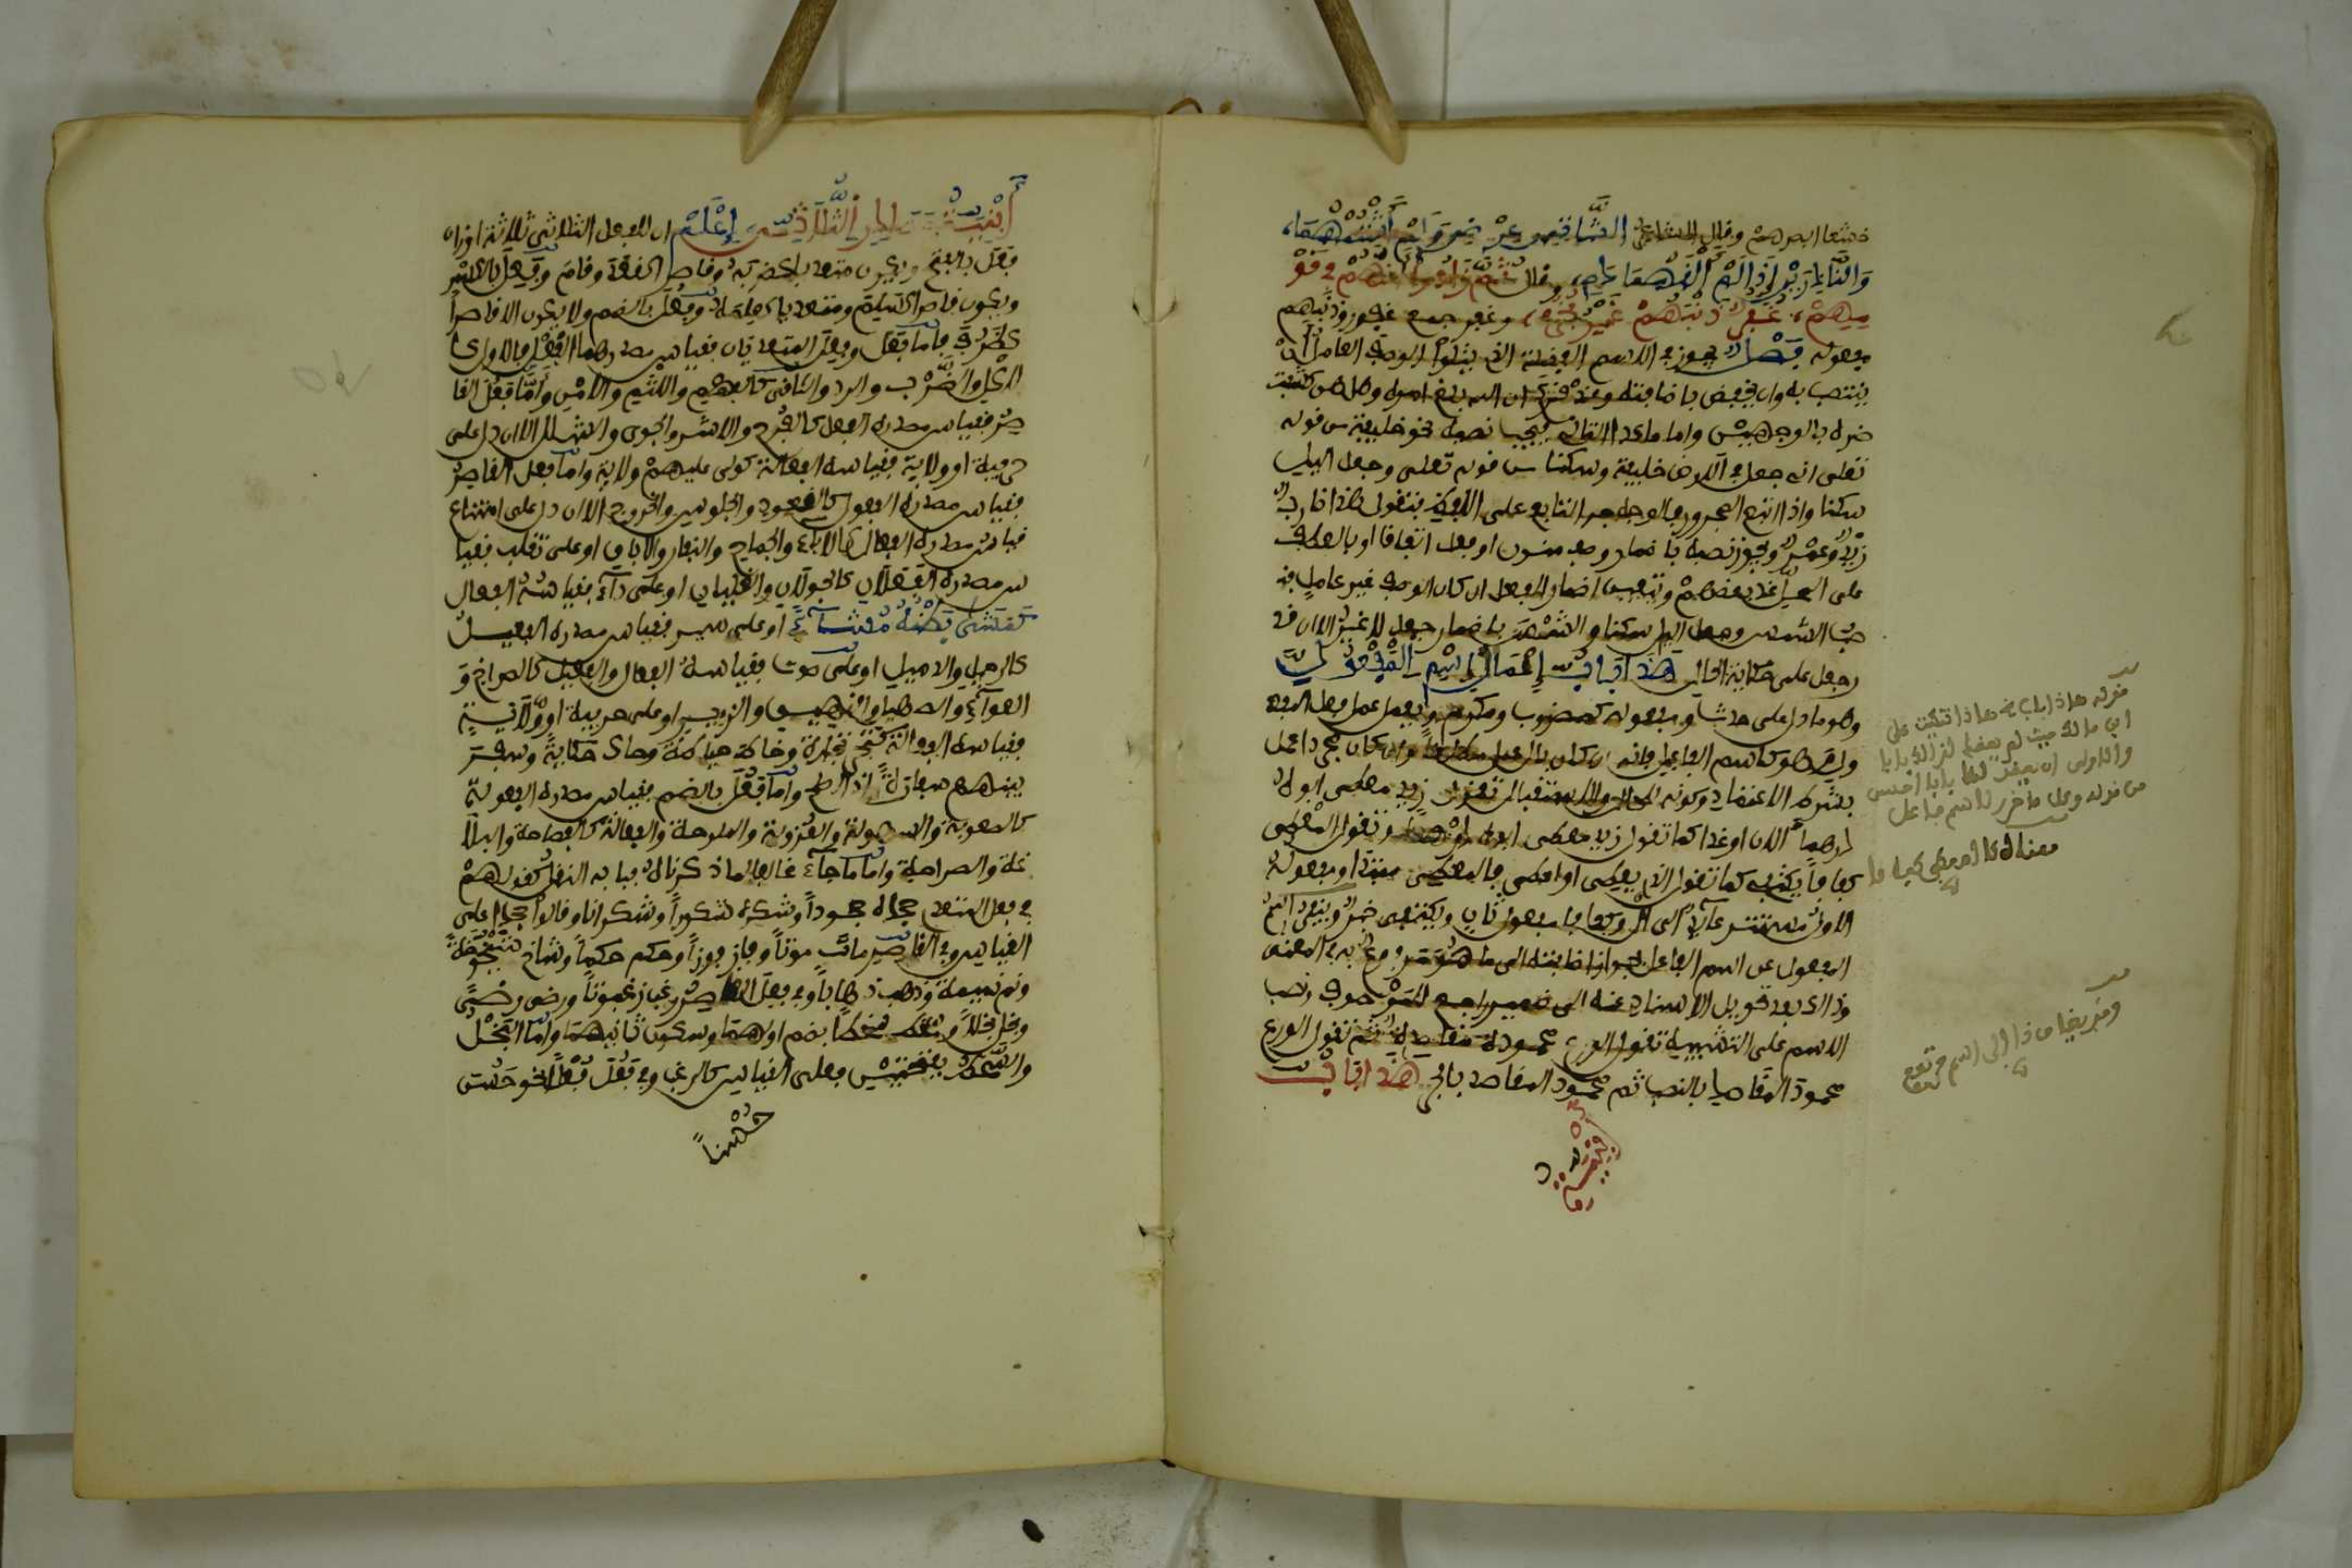 خشعا ابصرهم وقال الشاعر الشاتمي عرضي ولم أشتمهما
والناذرين إذا لم ألقهما دمي، وقال ثم زادوا أنهم في قو
مهم، غفر ذنبهم غير فخر، وغفر جمع غفور وذنبهم
مفعوله فصل يجوز في الاسم الفضلة الذي يتلو الوصف العامل أن
ينتصب به وان يخفض باضافته وقد قرئ ان الله بلغ امره وهل هن كشفت
ضره بالوجهين واما ما عدا التالي فيجب نصبه نحو خليفة من قوله
تعلى اني جعل في الارض خليفة وسكنا من قوله تعلى وجعل اليل
سكنا واذا اتبع المجرور فالوجه جر التابع على اللفظ فتقول هذا ضارب
زيد وعمرو ويجوز نصبه باضمار وصف منون او فعل اتفاقا او بالعطف
على المحل عند بعضهم ويتعين اضمار الفعل ان كان الوصف غير عامل فنـ
صب الشمس وجعل اليل سكنا والشمس باضمار جعل لا غير الا ان قد
رجعل على حكاية الحال هذا باب إعمال اسم المفعول
وهو ما دل على حدث ومفعوله كمضروب ومكرم ويعمل عمل فعل المفعو
ل وهو كاسم الفاعل في انه ان كان بال عمل مطلقا وان كان مجردا عمل
بشرط الاعتماد وكونه للحال او الاستقبال تقول زيد معطى ابوه
درهما الان او غدا كما تقول زيد يعطى ابوه درهما وتقول المعطى
كفافا يكتفي كما تقول الذي يعطى او اعطي فالمعطى مبتدا ومفعوله
الاول مستتر عائد الى ال وكفافا مفعول ثان ويكتفي خبر وينفرد اسم
المفعول عن اسم الفاعل بجواز اضافته الى ما هو مرفوع به في المعنى
وذلك بعد تحويل الاسناد عنه الى ضمير راجع للموصوف ونصب
الاسم على التشبيه تقول الورع محمودة مقاصده ثم تقول الورع
محمود المقاصد بالنصب ثم محمود المقاصد بالجر هذا باب
قوله هاذا الباب هاذا تنكيت على
ابن مالك حيث لم يعقد لذلك بابا
والاولى ان يعقد لها بابا احسن
من قوله وكل ما قرر لاسم فاعل
معناه كالمعطى كفافا
وقد يضاف ذا الى اسم مرتفع
أبنية مصادر الثلاثي إعلم ان للفعل الثلاثي ثلاثة اوزان
فعل بالفتح ويكون متعديا كضربه وقاصرا كقعد وقام وفعل بالكسر
ويكون قاصرا كسلم ومتعديا كعلمه وفعل بالضم ولا يكون الا قاصرا
كظرف فاما فعل وفعل المتعديان فقياس مصدرهما الفعل فالاول كا
لاكل والضرب والرد والثاني كالفهم واللثم والامن وأما فعل القا
صر فقياس مصدره الفعل كالفرح والاشر والجوى والشلل الا ان دل على
حرفة او ولاية فقياسه الفعالة كولي عليهم ولاية واما فعل القاصر
فقياس مصدره الفعول كالقعود والجلوس والخروج الا ان دل على امتناع
فقياس مصدره الفعال كالاباء والجماح والنفار والاباق او على تقلب فقيا
س مصدره الفعلان كالجولان والغليان او على داء فقياسه الفعال
كمشى بطنه مشاء او على سير فقياس مصدره الفعيل
كالرحيل والذميل او على صوت فقياسه الفعال والفعيل كالصراخ و
العواء والصهيل والنهيق والزئير او على حرفة او ولاية
فقياسه الفعالة كتجر تجارة وخاط خياطة وحاك حياكة وسفر
بينهم سفارة اذا اصلح واما فعل بالضم فقياس مصدره الفعولة
كالصعوبة والسهولة والعذوبة والملوحة والفعالة كالفصاحة والبلا
غة والصراحة واما ما جاء مخالفا لما ذكرناه فبابه النقل كقولهم
في فعل المتعدي جحده جحودا وشكره شكورا وشكرانا وقالوا جحدا على
القياس وفي القاصر مات موتا وفاز فوزا وحكم حكما وشاخ شيخوخة
ونم نميمة وذهب ذهابا وفي فعل القاصر رغب رغبوتا ورضي رضى
وبخل بخلا وسخط سخطا بضم اولهما وسكون ثانيهما واما البخل
والسخط بفتحتين فعلى القياس كالرغب وفي فعل فعلا نحو حسن
حسنا